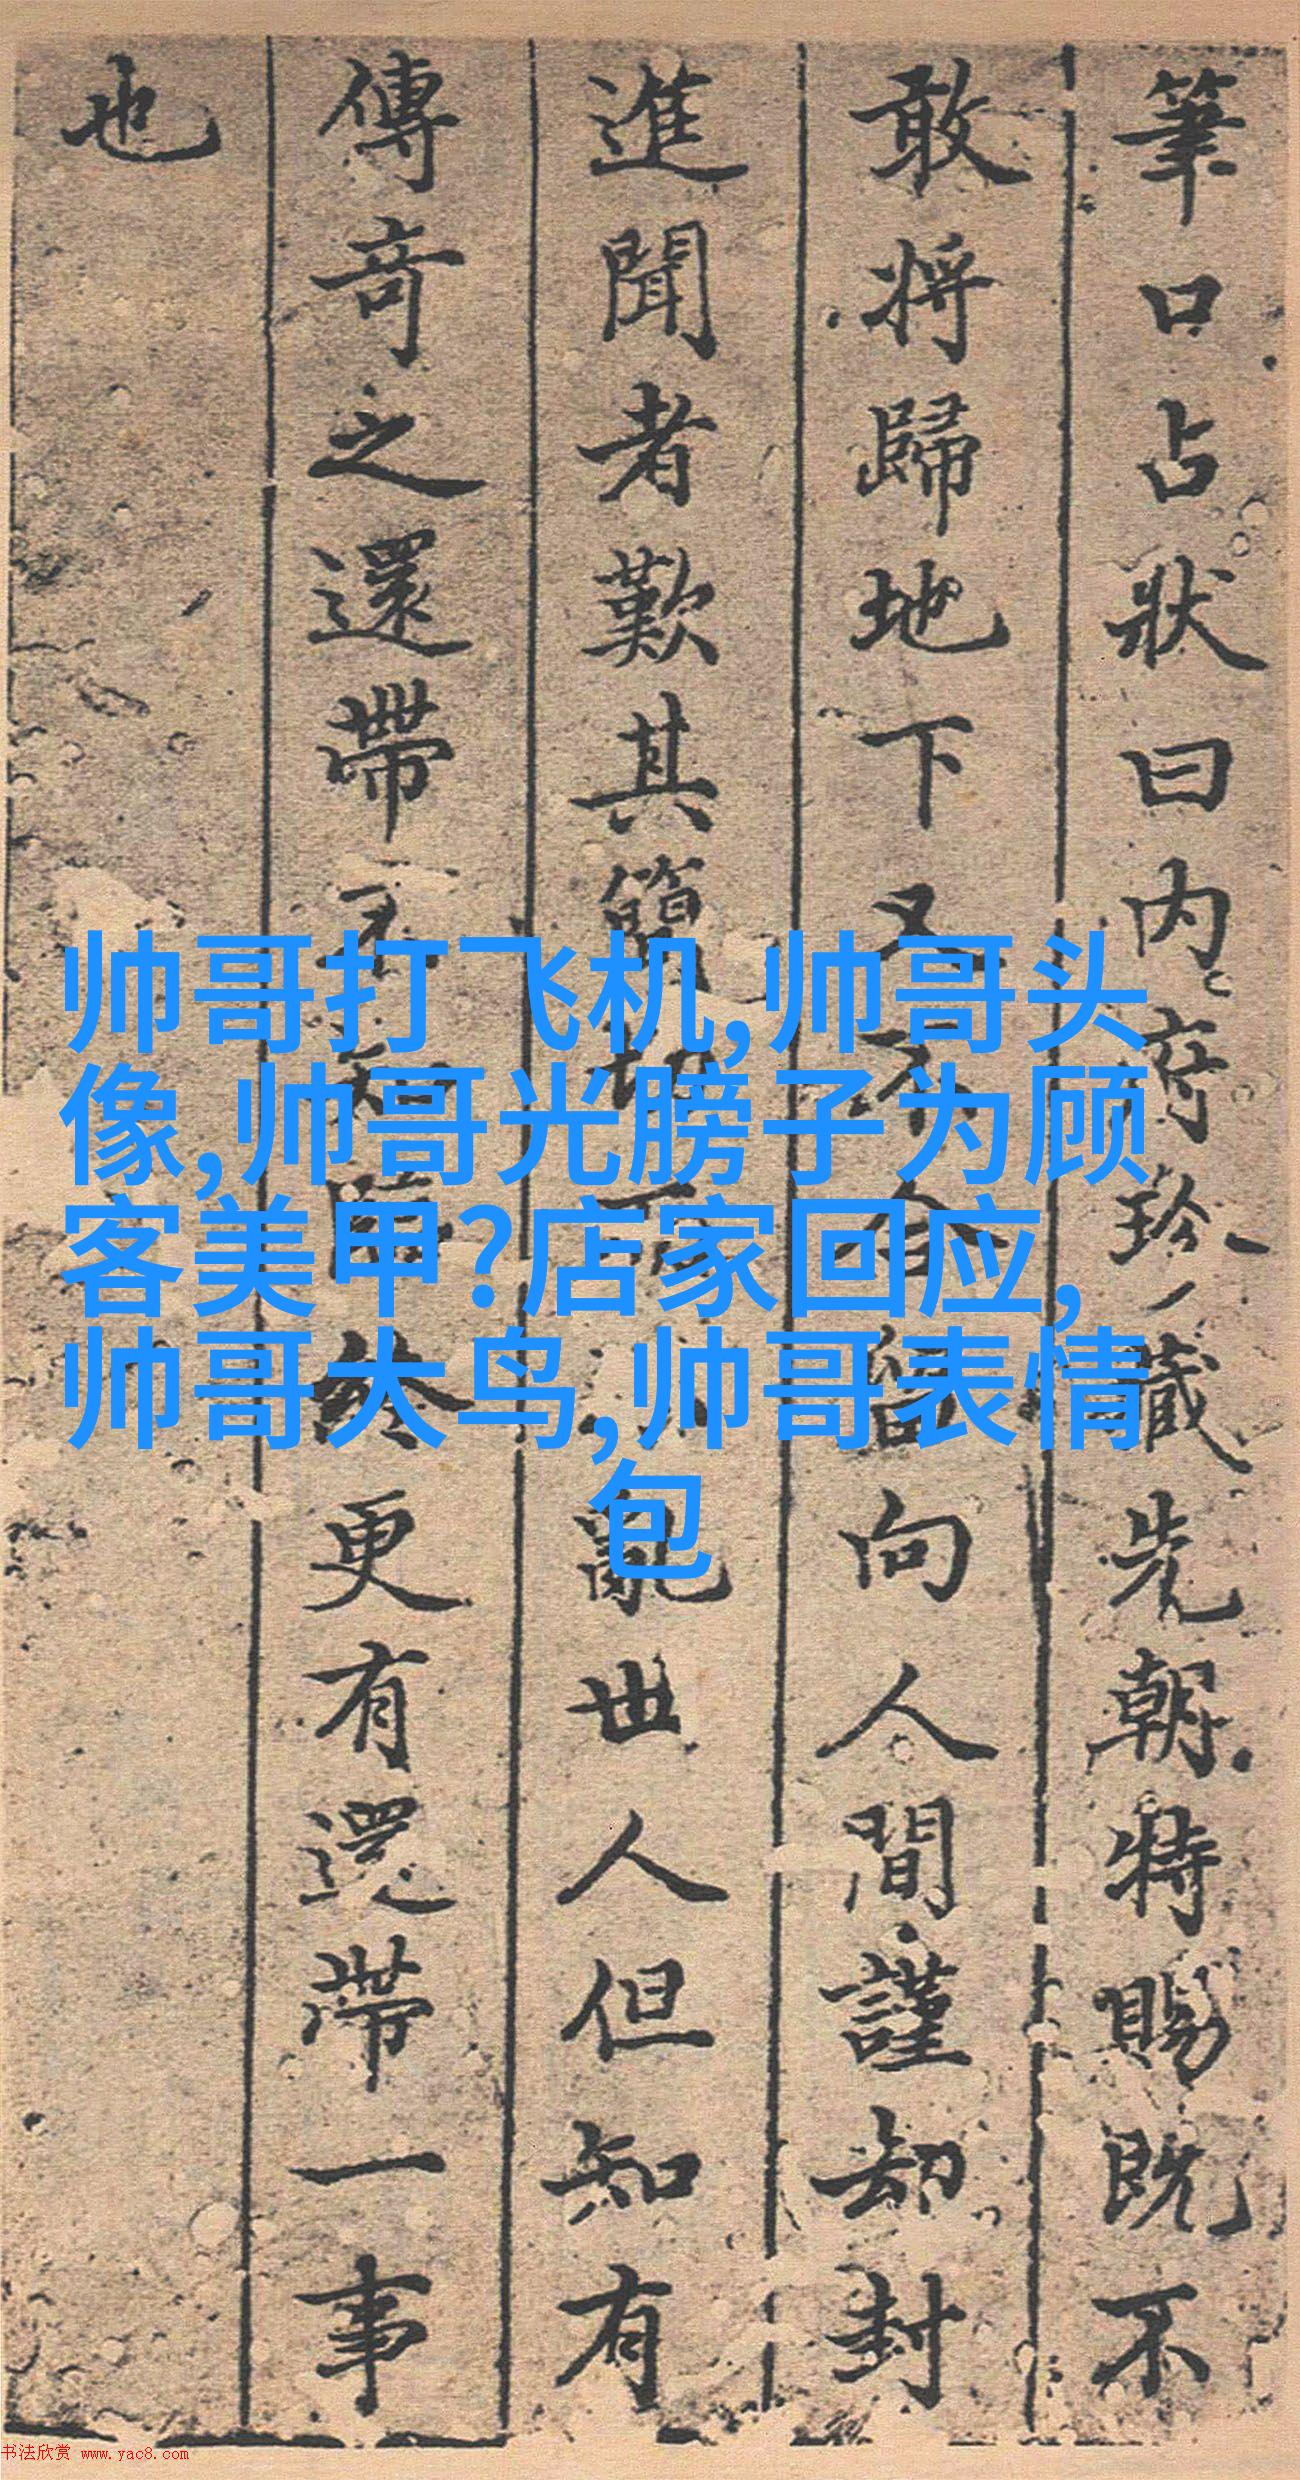 筆口占狀曰内府珍藏先朝特賜既不
敢將歸地下又不合留向人間謹却封
進聞者歎其簡切亂世人但知有
傳奇之還帶不知臨終更有還帶一事
也
帅哥打飞机,帅哥头
像,帅哥光膀子为顾
客美甲?店家回应,
帅哥大鸟,帅哥表情
包
书法欣赏 www.yac8.com